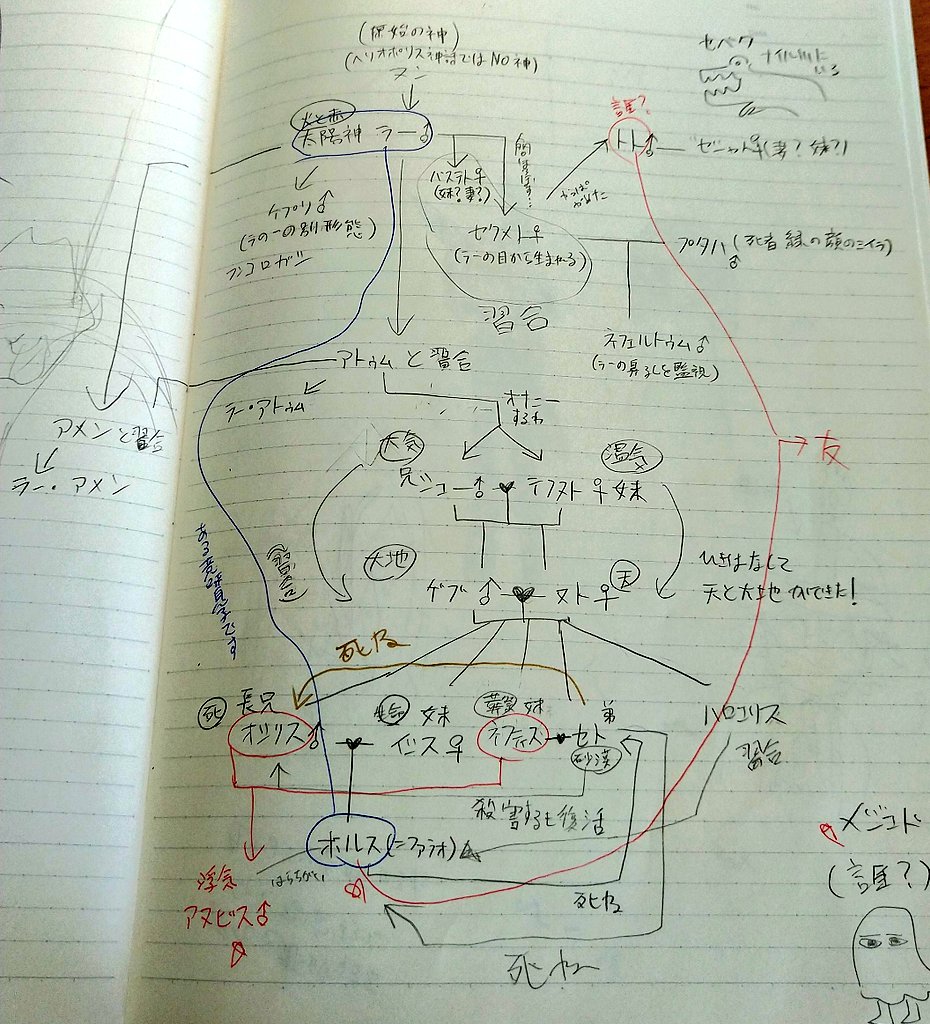 (原始の神)
(ヘリオポリス神話ではNO神)
ヌン
セベク
ナイル川に
いる
火と赤
太陽神 ラー♂
誰?
トト♂
セシャト♀(妻?妹?)
バステト♀
(妹?妻?)
やっぱ
やめた
ケプリ♂
(ラーの別形態)
フンコロガシ
セクメト♀
(ラーの目から生まれる)
プタハ(死者 緑の顔のミイラ)
♂
習合
ネフェルトゥム♂
(ラーの昇るしを監視)
アトゥムと習合
ラー・アトゥム
オナニー
するわ
アメンと習合
ラー・アメン
友
大気
湿気
兄シュー♂
テフヌト♀妹
大地
天
ゲブ♂
ヌト♀
ひきはなして
天と大地ができた!
(習合)
ある意味習合です
死ね
死
長兄
オシリス♂
生命
妹
イシス♀
葬祭
妹
ネフティス
弟
セト
砂漠
ハロエリス
習合
殺害するも復活
ホルス(=ファラオ)
はらちがい
浮気
アヌビス♂
死ね
死ね
メジェド
(誰?)